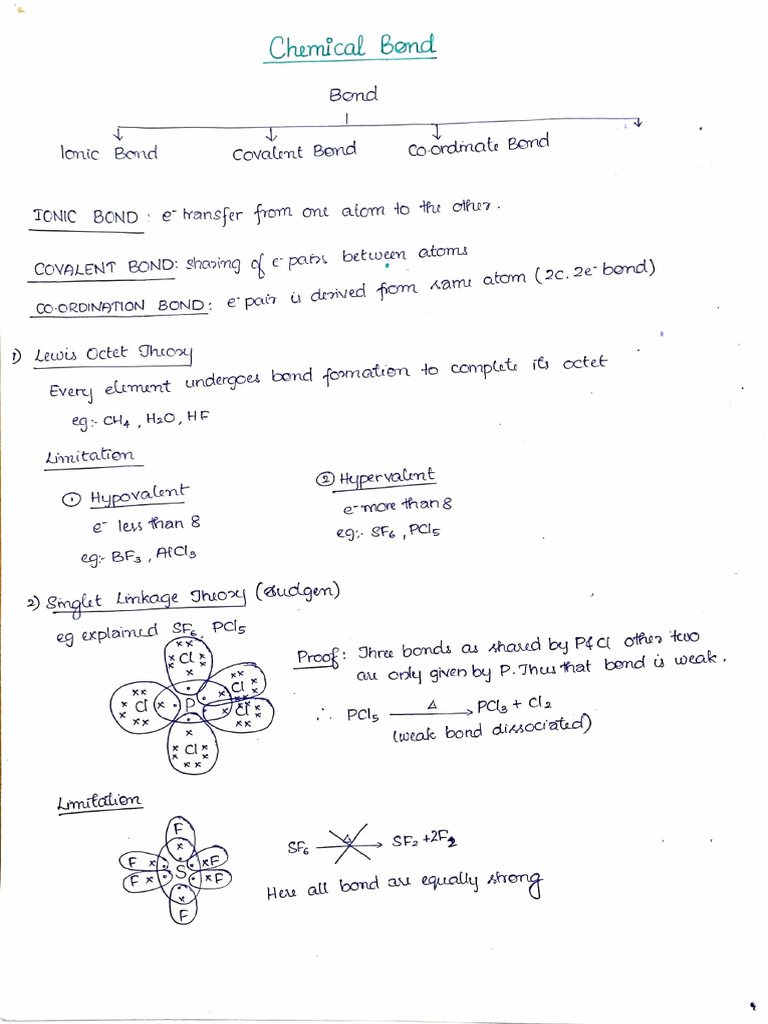 Chemical Bond
Bond
Ionic Bond Covalent Bond Co-ordinate Bond
IONIC BOND : e⁻ transfer from one atom to the other.
COVALENT BOND: sharing of e⁻ pairs between atoms
CO-ORDINATION BOND : e⁻ pair is derived from same atom (2c. 2e⁻ bond)
1) Lewis Octet Theory
Every element undergoes bond formation to complete its octet
eg:- CH4 , H2O , HF
Limitation
① Hypovalent
e⁻ less than 8
eg:- BF3 , AlCl3
② Hypervalent
e⁻ more than 8
eg:- SF6 , PCl5
2) Singlet Linkage Theory (Sudgen)
eg explained SF6, PCl5
Cl
Cl
Cl P Cl
Cl
Proof : Three bonds as shared by P & Cl other two
are only given by P. Thus that bond is weak.
∴ PCl5 —Δ→ PCl3 + Cl2
(weak bond dissociated)
Limitation
F
F F
S
F F
F
SF6 —Δ→ SF2 + 2F2
Here all bond are equally strong